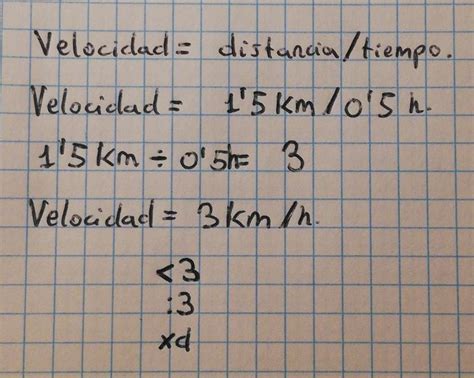 Velocidad = distancia/tiempo.
Velocidad = 1'5 Km / 0'5 h.
1'5 Km ÷ 0'5h= 3
Velocidad = 3 km/h.
<3
:3
xd